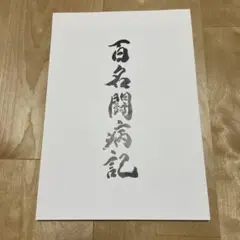 百名闘病記